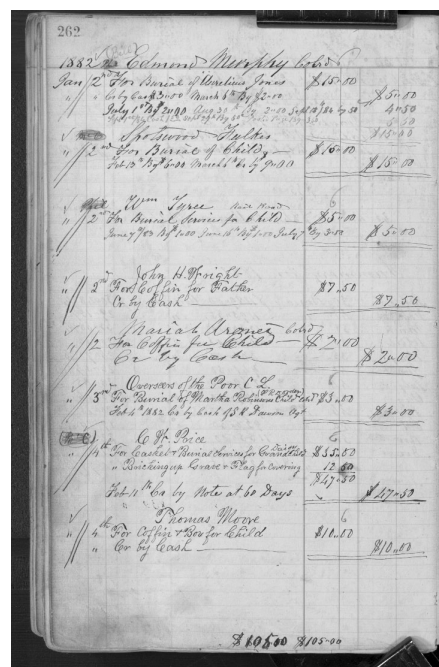 262
1882 Edmond Murphy Cold
Jan 2nd For Burial of Aurelius Jones $15.00
Cr by Cash $3.00 March 6th By $2.00 $5.00
July 1st By 2.00 Aug 30 2.00 Sept 18/84 by 50 4.50
$15.00
Spotswood Fulks
2nd For Burial of Child $15.00
Feb 13th By $6.00 March 6th Cr by 9.00 $15.00
Wm Tyree
2nd For Burial Services for Child $5.00
June 7/83 By 1.00 June 16th By 1.00 July 7 By 3.00 $5.00
John H. Wright
2nd For Coffin for Father $7.50
Cr by Cash $7.50
Mariah Cold
2 For Coffin for Child $2.00
Cr by Cash $2.00
Overseers of the Poor C. L.
3rd For Burial of Martha Child $3.00
Feb 4th 1882 Cr by Cash of S. R. Dawson Agt $3.00
C. W. Price
4th For Casket & Burial Services for Grand $35.00
" Bricking up Grave & Flag for covering 12.50
$47.50
Feb 11th Cr by Note at 60 Days $47.50
Thomas Moore
4th For Coffin & Box for Child $10.00
" Cr by Cash $10.00
$105.00 $105.00